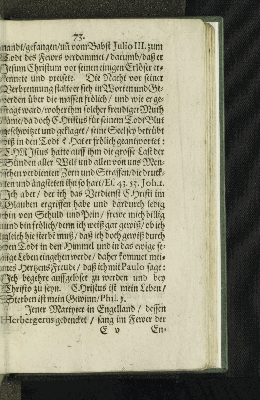 73.
nandt/gefangen/uñ vom Babst Julio III. zum
Todt des Fewrs verdammet/darumb/daß er
Jesum Christum vor seinen einigen Erlöser er-
kennete und preisete. Die Nacht vor seiner
Verbrennung stellete er sich in Worten und Ge-
berden über die massen frölich/und wie er ge-
fragt ward/woher ihm solcher frewdiger Muth
käme/da doch Christus für seinem Todt Blut
geschwitzet und geklaget/seine Seel sey betrübt
biß in den Todt? Hat er frölich geantwortet:
CHRistus hatte auff ihm die grosse Last der
Sünden aller Welt und allen von uns Men-
schen verdienten Zorn und Straffen/die druck-
ten und ängsteten ihn so hart/Es. 43. 53. Joh. 1.
Ich aber/der ich das Verdienst Christi im
Glauben ergriffen habe und dardurch ledig
bin von Schuld und Pein/frewe mich billig
und bin frölich/denn ich weiß gar gewiß/ob ich
gleich hie sterbē muß/daß ich doch gewiß durch
den Todt in den Himmel und in das ewige se-
lige Leben eingehen werde/daher kommet mei-
nes Hertzens Freude/daß ich mit Paulo sage:
Ich begehre auffgelöset zu werden und bey
Christo zu seyn. Christus ist mein Leben/
Sterben ist mein Gewinn/Phil. 1.
Jener Martyrer in Engelland/dessen
Herbergerus gedencket/sang im Fewer der
E v En-